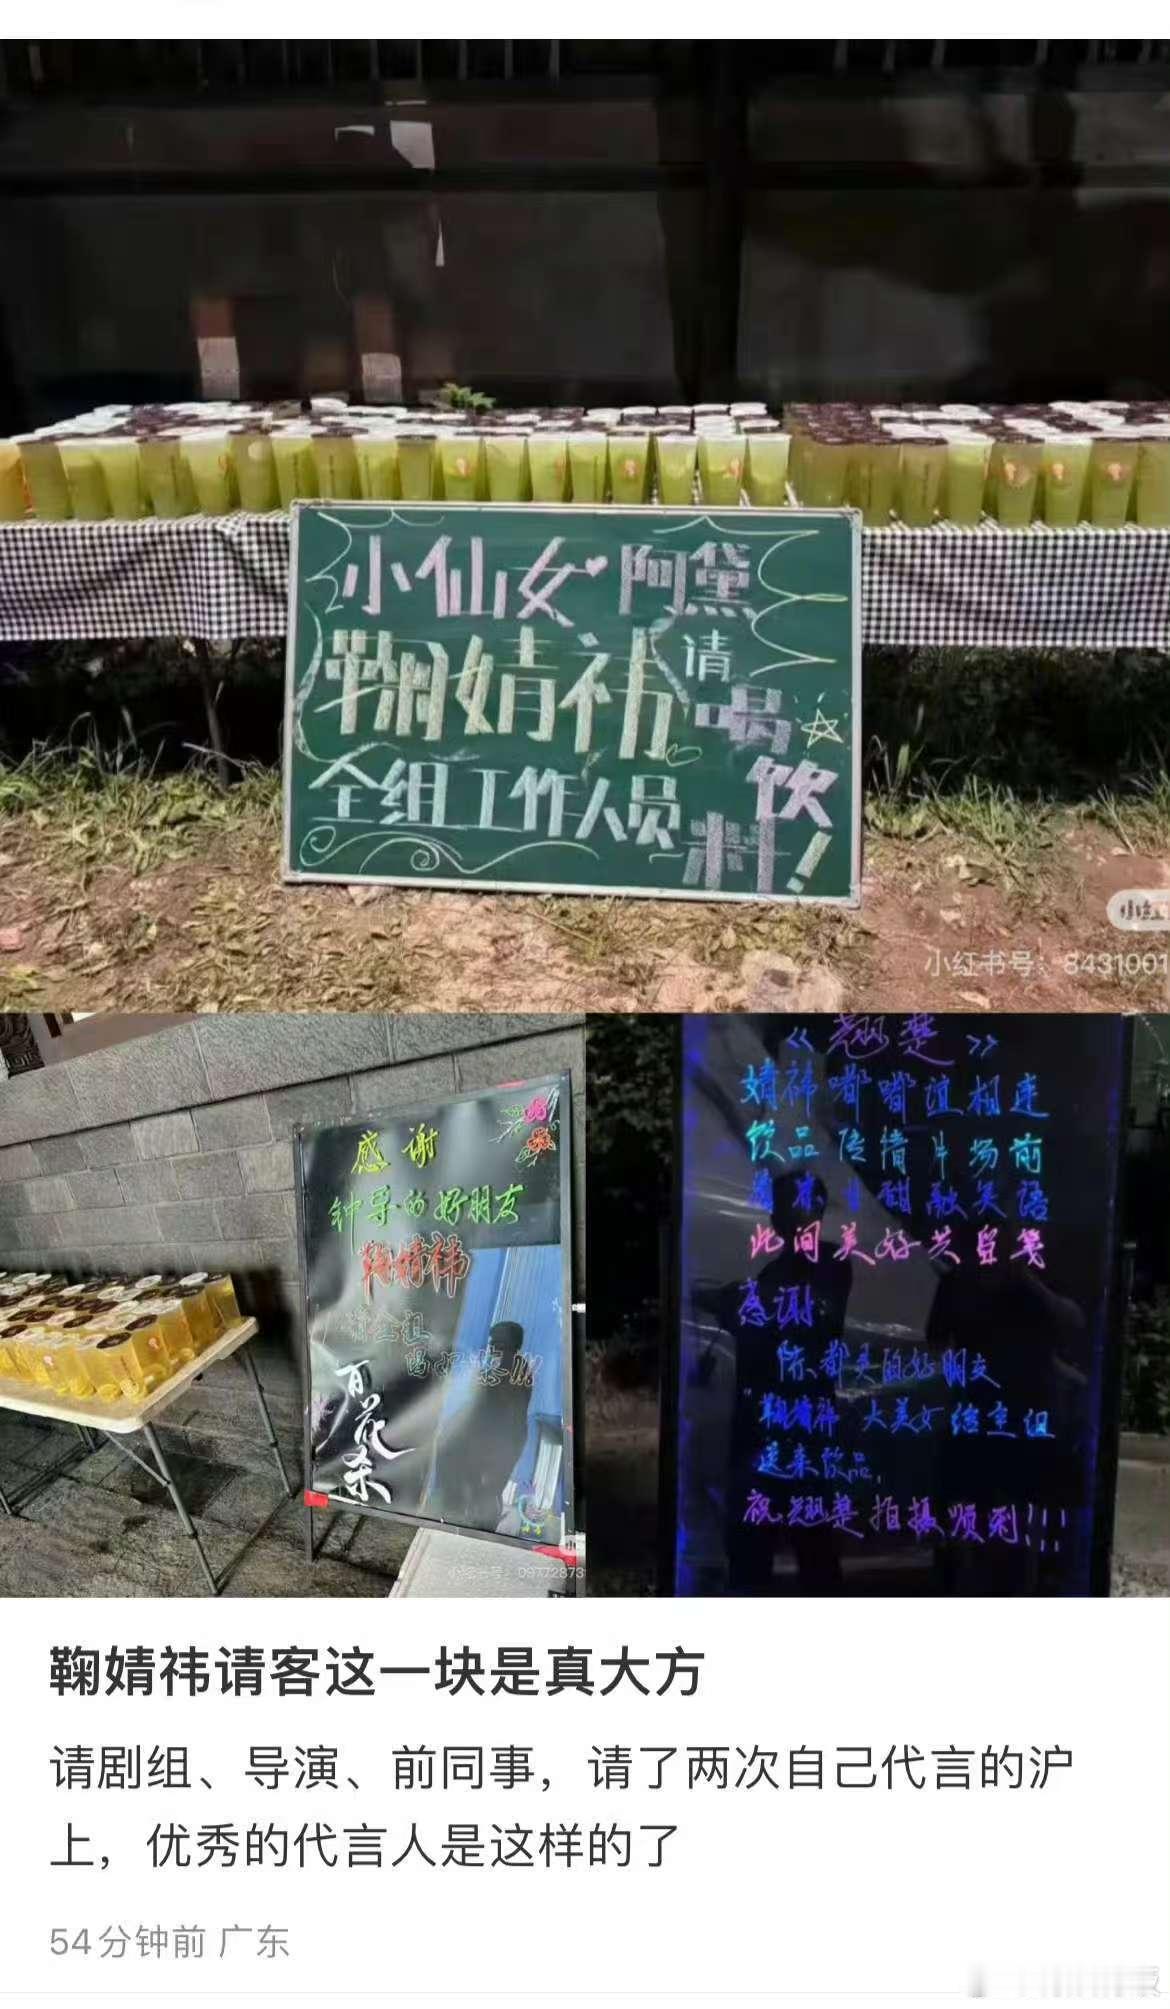 小仙女 阿黛
鞠婧祎请
喝
全组工作人员饮
料!
小红
小红书号: 8431001
感谢
钟导的好朋友
鞠婧祎
请全组
喝好茶!!!
百花杀
小红书号: 09772873
《翘楚》
婧祎嘟嘟谊相连
饮品传情片场前
甜融笑语
此间美好共
感谢:
陈都灵的好朋友
"鞠婧祎"大美女给全组
送来饮品,
祝翘楚拍摄顺利!!!
鞠婧祎请客这一块是真大方
请剧组、导演、前同事，请了两次自己代言的沪
上，优秀的代言人是这样的了
54分钟前 广东